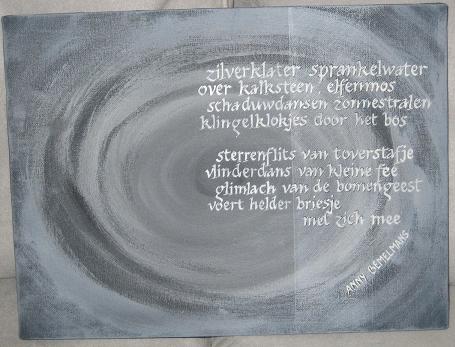 zilverklater sprankelwater
over kalksteen, elfenmos
schaduwdansen zonnestralen
klingelklokjes door het bos
sterrenflits van toverstafje
vlinderdans van kleine fee
glimlach van de bomengeest
voert helder briesje
met zich mee
ANNY GEMELMANS